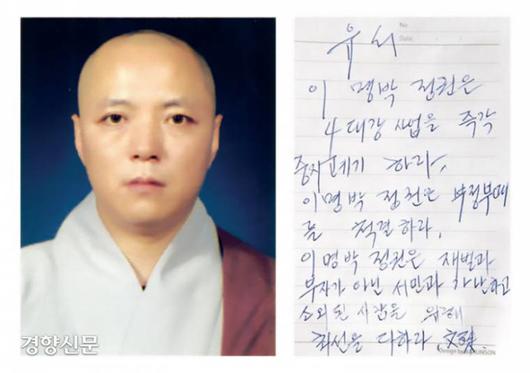 경향신문
No.
Date.
유서
이 명박 정권은
4대강 사업을 즉각
중지 폐기 하라,
이명박 정권은 부정부패
를 척결하라,
이명박 정권은 재벌과
부자가 아닌 서민과 가난하고
소외된 사람을 위해
최선을 다하라 文殊